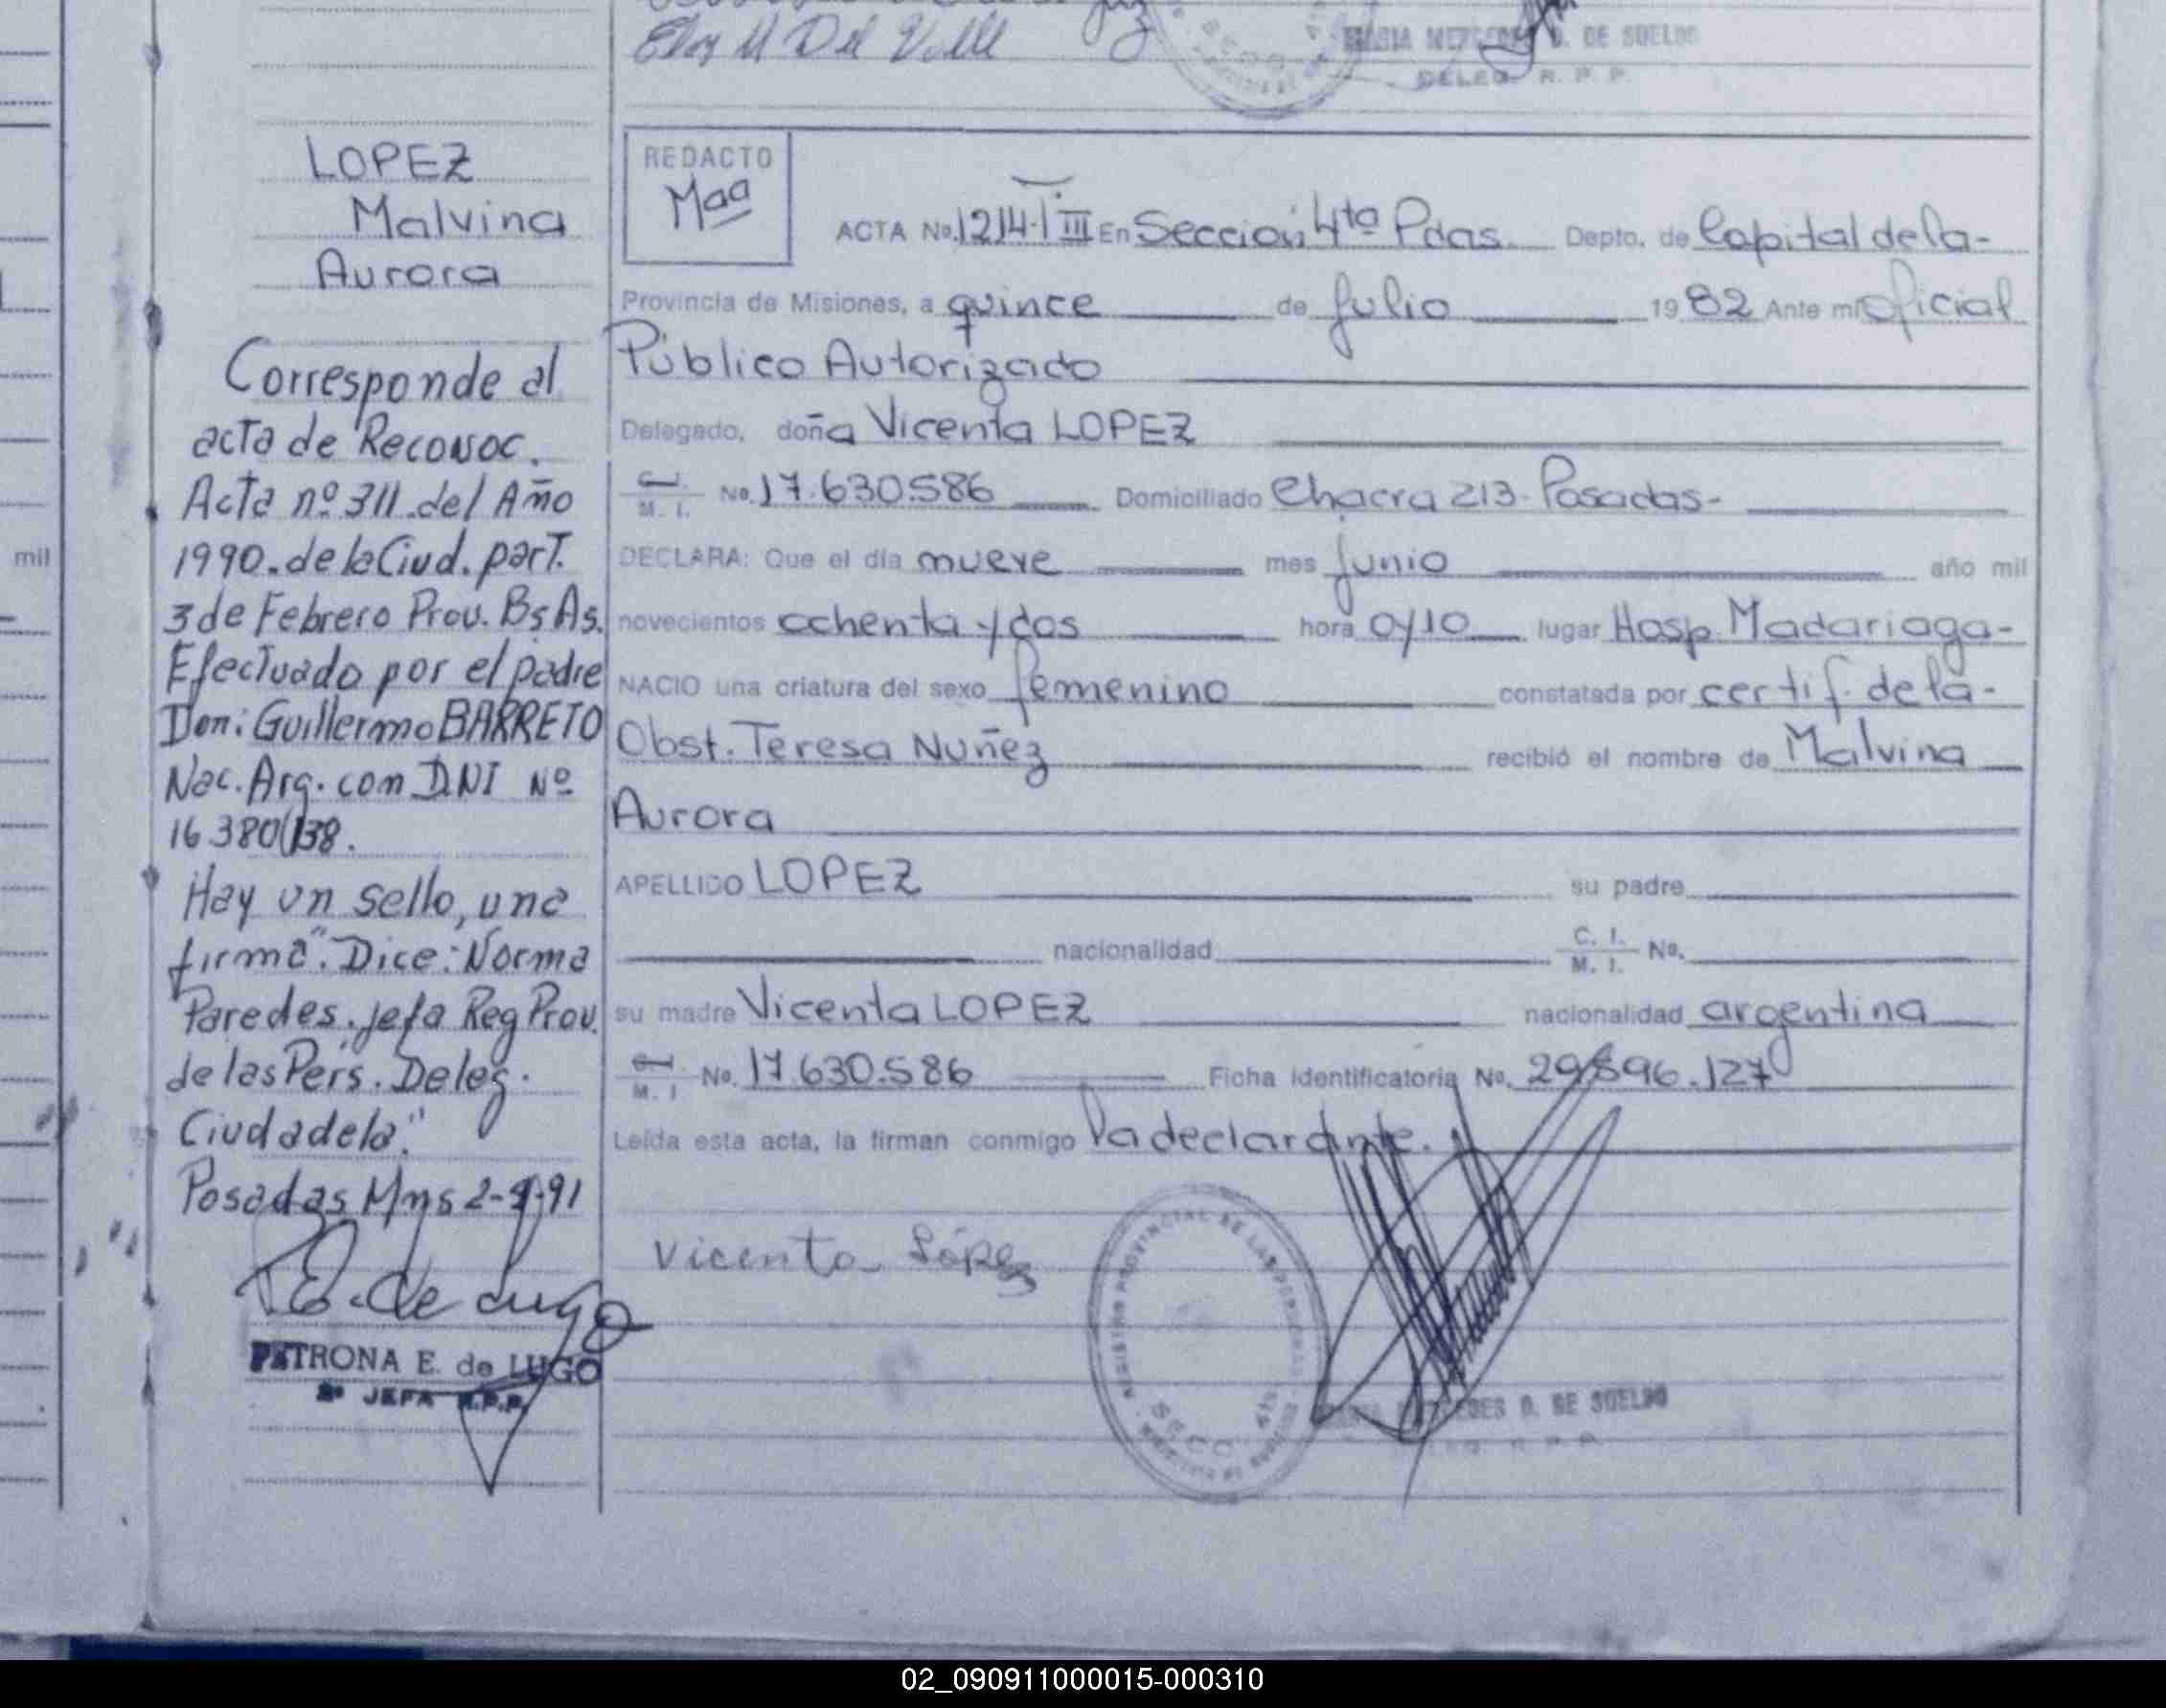 Eloy M Del Valle
MARIA MERCEDES D. DE SUELDO
DELEG. R. P. P.
LOPEZ
Malvina
Aurora
Corresponde al
acta de Reconoc.
Acta nº 311 del Año
1990. de la Ciud. part.
3 de Febrero Prov. Bs As.
Efectuado por el padre
Don: Guillermo BARRETO
Nac. Arg. con D.NI Nº
16 380 138.
Hay un sello, una
firma". Dice: Norma
Paredes. jefa Reg Prov.
de las Pers. Deleg.
Ciudadela."
Posadas Mns 2-9-91
PETRONA E. de LUGO
2º JEFA R.P.P.
mil
REDACTO
Maa
ACTA No. 1214 T III En Sección 4ta Pdas. Depto. de Capital de la-
Provincia de Misiones, a quince de Julio 1982 Ante mí Oficial
Público Autorizado
Delegado, doña Vicenta LOPEZ
C.I. M. I. No. 17.630.586 Domiciliado Chacra 213- Posadas-
DECLARA: Que el día nueve mes Junio año mil
novecientos ochenta y dos hora 0y10 lugar Hosp. Madariaga-
NACIO una criatura del sexo femenino constatada por certif. de la-
Obst. Teresa Nuñez recibió el nombre de Malvina
Aurora
APELLIDO LOPEZ su padre
nacionalidad C. I. M. I. No.
su madre Vicenta LOPEZ nacionalidad argentina
C.I. M. I No. 17.630.586 Ficha Identificatoria No. 29.596.127
Leída esta acta, la firman conmigo la declarante.
Vicenta López
REGISTRO PROVINCIAL DE LAS PERSONAS
SECC. 4ta
MERCEDES D. DE SUELDO
02_090911000015-000310